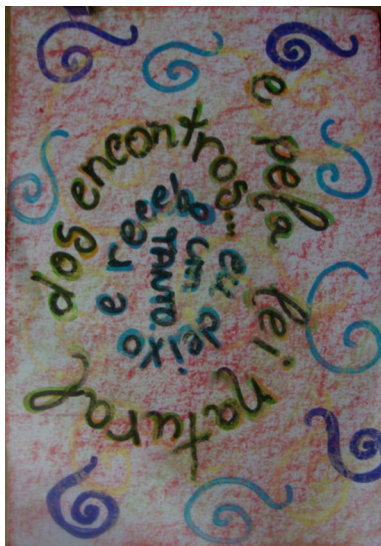 e pela lei natural dos encontros... eu deixo e recebo um TANTO.